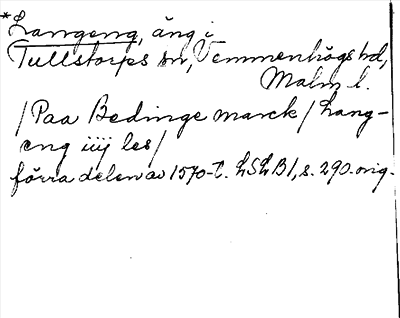 *Langeng, äng i
Tullstorps sn, Vemmenhögs hd,
Malm l.
/Paa Bedinge marck/Lang-
eng iiij les/
förra delen av 1570-t. LSLB1, s. 290. orig.